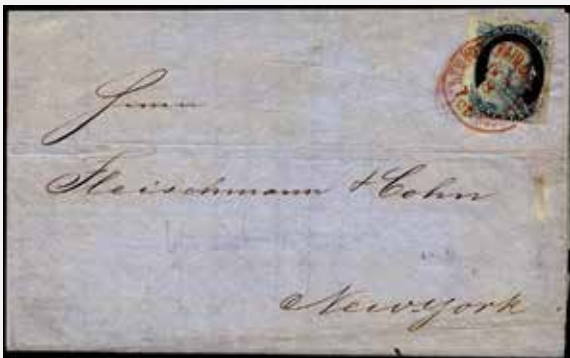 Herrn
Fleischmann & Cohn
New York